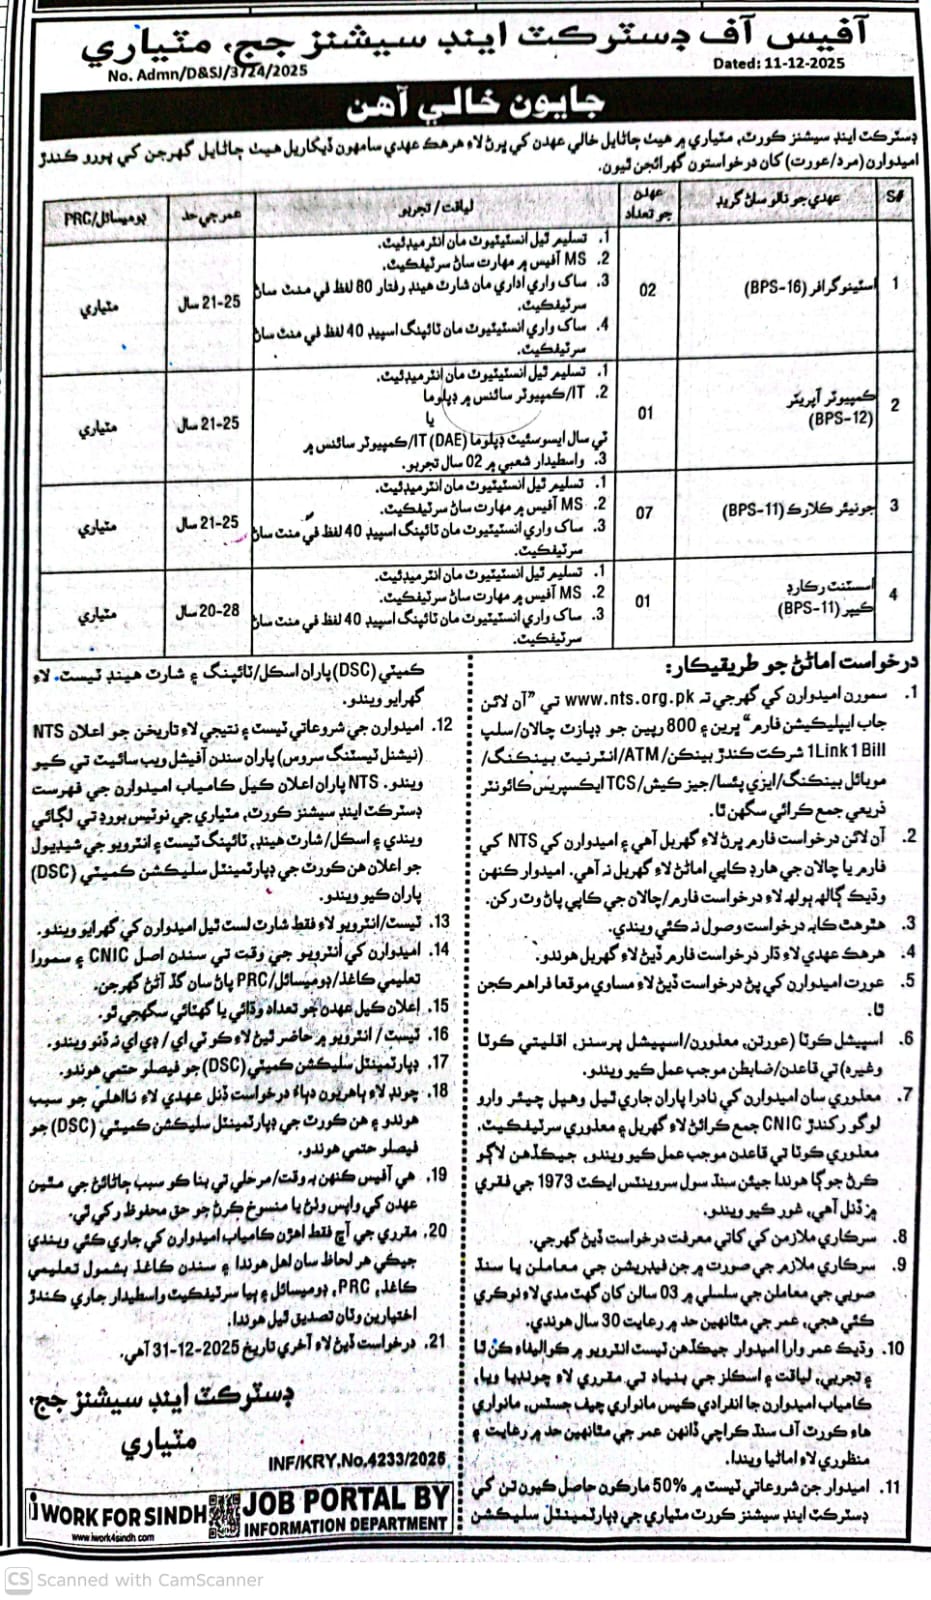 آفيس آف ڊسٽرڪٽ اينڊ سيشنز جج، مٽياري
No. Admn/D&SJ/3724/2025
Dated: 11-12-2025
جايون خالي آهن
ڊسٽرڪٽ اينڊ سيشنز ڪورٽ، مٽياري ۾ هيٺ ڄاڻايل خالي عهدن کي ڀرڻ لاءِ هر هڪ عهدي سامهون ڏيکاريل هيٺ ڄاڻايل گهرجن کي پورو ڪندڙ
اميدوارن (مرد/عورت) کان درخواستون گهرائجن ٿيون.
S#
عهدي جو نالو ساڻ گريڊ
عهدن جو تعداد
لياقت / تجربو
عمر جي حد
ڊوميسائل/PRC
1
اسٽينوگرافر (BPS-16)
02
1. تسليم ٿيل انسٽيٽيوٽ مان انٽرميڊئيٽ.
2. MS آفيس ۾ مهارت ساڻ سرٽيفڪيٽ.
3. ساک واري اداري مان شارٽ هينڊ رفتار 80 لفظ في منٽ ساڻ
سرٽيفڪيٽ.
4. ساک واري انسٽيٽيوٽ مان ٽائپنگ اسپيڊ 40 لفظ في منٽ ساڻ
سرٽيفڪيٽ.
21-25 سال
مٽياري
2
ڪمپيوٽر آپريٽر
(BPS-12)
01
1. تسليم ٿيل انسٽيٽيوٽ مان انٽرميڊئيٽ.
2. IT/ڪمپيوٽر سائنس ۾ ڊپلوما
يا
ٽي سال ايسوسئيٽ ڊپلوما (DAE) IT/ڪمپيوٽر سائنس ۾
3. واسطيدار شعبي ۾ 02 سال تجربو.
21-25 سال
مٽياري
3
جونيئر ڪلارڪ (BPS-11)
07
1. تسليم ٿيل انسٽيٽيوٽ مان انٽرميڊئيٽ.
2. MS آفيس ۾ مهارت ساڻ سرٽيفڪيٽ.
3. ساک واري انسٽيٽيوٽ مان ٽائپنگ اسپيڊ 40 لفظ في منٽ ساڻ
سرٽيفڪيٽ.
21-25 سال
مٽياري
4
اسسٽنٽ رڪارڊ
ڪيپر (BPS-11)
01
1. تسليم ٿيل انسٽيٽيوٽ مان انٽرميڊئيٽ.
2. MS آفيس ۾ مهارت ساڻ سرٽيفڪيٽ.
3. ساک واري انسٽيٽيوٽ مان ٽائپنگ اسپيڊ 40 لفظ في منٽ ساڻ
سرٽيفڪيٽ.
20-28 سال
مٽياري
درخواست اماڻڻ جو طريقيڪار:
1. سمورن اميدوارن کي گهرجي ته www.nts.org.pk تي ”آن لائن
جاب ايپليڪيشن فارم“ ڀرين ۽ 800 رپين جو ڊپازٽ چالان/سلپ
1Link 1 Bill شرڪت ڪندڙ بينڪن/ATM/انٽرنيٽ بينڪنگ/
موبائل بينڪنگ/ايزي پئسا/جيز ڪيش/TCS ايڪسپريس ڪائونٽر
ذريعي جمع ڪرائي سگهن ٿا.
2. آن لائن درخواست فارم ڀرڻ لاءِ گهربل آهي ۽ اميدوارن کي NTS کي
فارم يا چالان جي هارڊ ڪاپي اماڻڻ لاءِ گهربل نه آهي. اميدوار ڪنهن
وڌيڪ ڳالهه ٻولهه لاءِ درخواست فارم/چالان جي ڪاپي پاڻ وٽ رکن.
3. هٿوهٿ ڪابه درخواست وصول نه ڪئي ويندي.
4. هر هڪ عهدي لاءِ ڌار درخواست فارم ڏيڻ لاءِ گهربل هوندو.
5. عورت اميدوارن کي پڻ درخواست ڏيڻ لاءِ مساوي موقعا فراهم ڪجن
ٿا.
6. اسپيشل ڪوٽا (عورتن، معذورن/اسپيشل پرسنز، اقليتي ڪوٽا
وغيره) تي قاعدن/ضابطن موجب عمل ڪيو ويندو.
7. معذوري سان اميدوارن کي نادرا پاران جاري ٿيل وهيل چيئر وارو
لوگو رکندڙ CNIC جمع ڪرائڻ لاءِ گهربل ۽ معذوري سرٽيفڪيٽ،
معذوري ڪوٽا تي قاعدن موجب عمل ڪيو ويندو، جيڪڏهن لاڳو
ڪرڻ جوڳا هوندا جيئن سنڌ سول سرونٽس ايڪٽ 1973 جي فقري
۾ ڏنل آهي، غور ڪيو ويندو.
8. سرڪاري ملازمن کي کاتي معرفت درخواست ڏيڻ گهرجي.
9. سرڪاري ملازم جي صورت ۾ جن فيڊريشن جي معاملن يا سنڌ
صوبي جي معاملن جي سلسلي ۾ 03 سالن کان گهٽ مدي لاءِ نوڪري
ڪئي هجي، عمر جي مٿانهين حد ۾ رعايت 30 سال هوندي.
10. وڌيڪ عمر وارا اميدوار جيڪڏهن ٽيسٽ انٽرويو ۾ ڪواليفاءِ ڪن ٿا
۽ تجربي، لياقت ۽ اسڪلز جي بنياد تي مقرري لاءِ چونڊيا ويا،
ڪامياب اميدوارن جا انفرادي ڪيس مانواري چيف جسٽس، مانواري
هاءِ ڪورٽ آف سنڌ ڪراچي ڏانهن عمر جي مٿانهين حد ۾ رعايت ۽
منظوري لاءِ اماڻيا ويندا.
11. اميدوار جن شروعاتي ٽيسٽ ۾ 50% مارڪون حاصل ڪيون تن کي
ڊسٽرڪٽ اينڊ سيشنز ڪورٽ مٽياري جي ڊپارٽمينٽل سليڪشن
ڪميٽي (DSC) پاران اسڪل/ٽائپنگ ۽ شارٽ هينڊ ٽيسٽ لاءِ
گهرايو ويندو.
12. اميدوارن جي شروعاتي ٽيسٽ ۽ نتيجي لاءِ تاريخن جو اعلان NTS
(نيشنل ٽيسٽنگ سروس) پاران سندن آفيشل ويب سائيٽ تي ڪيو
ويندو. NTS پاران اعلان ڪيل ڪامياب اميدوارن جي فهرست
ڊسٽرڪٽ اينڊ سيشنز ڪورٽ، مٽياري جي نوٽيس بورڊ تي لڳائي
ويندي ۽ اسڪل/شارٽ هينڊ، ٽائپنگ ٽيسٽ ۽ انٽرويو جي شيڊيول
جو اعلان هن ڪورٽ جي ڊپارٽمينٽل سليڪشن ڪميٽي (DSC)
پاران ڪيو ويندو.
13. ٽيسٽ/انٽرويو لاءِ فقط شارٽ لسٽ ٿيل اميدوارن کي گهرايو ويندو.
14. اميدوارن کي انٽرويو جي وقت تي سندن اصل CNIC ۽ سمورا
تعليمي ڪاغذ/ڊوميسائل/PRC پاڻ سان گڏ آڻڻ گهرجن.
15. اعلان ڪيل عهدن جو تعداد وڌائي يا گهٽائي سگهجي ٿو.
16. ٽيسٽ / انٽرويو ۾ حاضر ٿيڻ لاءِ ڪو ٽي اي / ڊي اي نه ڏنو ويندو.
17. ڊپارٽمينٽل سليڪشن ڪميٽي (DSC) جو فيصلو حتمي هوندو.
18. چونڊ لاءِ ٻاهريون دٻاءُ درخواست ڏنل عهدي لاءِ نااهلي جو سبب
هوندو ۽ هن ڪورٽ جي ڊپارٽمينٽل سليڪشن ڪميٽي (DSC) جو
فيصلو حتمي هوندو.
19. هي آفيس ڪنهن به وقت/مرحلي تي بنا ڪو سبب ڄاڻائڻ جي مٿين
عهدن کي واپس وٺڻ يا منسوخ ڪرڻ جو حق محفوظ رکي ٿي.
20. مقرري جي آڇ فقط اهڙن ڪامياب اميدوارن کي جاري ڪئي ويندي
جيڪي هر لحاظ سان اهل هوندا ۽ سندن ڪاغذ بشمول تعليمي
ڪاغذ، PRC، ڊوميسائل ۽ ٻيا سرٽيفڪيٽ واسطيدار جاري ڪندڙ
اختيارين وٽان تصديق ٿيل هوندا.
21. درخواست ڏيڻ لاءِ آخري تاريخ 31-12-2025 آهي.
ڊسٽرڪٽ اينڊ سيشنز جج،
مٽياري
INF/KRY.No.4233/2025
i WORK FOR SINDH
www.iwork4sindh.com
JOB PORTAL BY
INFORMATION DEPARTMENT
CS Scanned with CamScanner